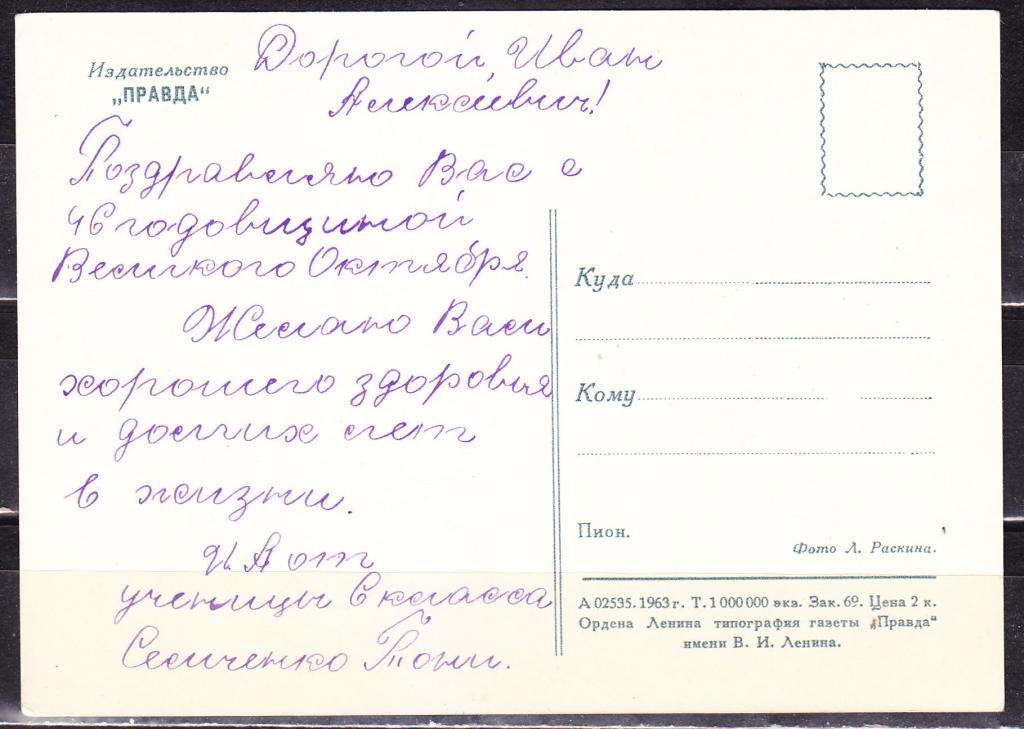 Издательство
„ПРАВДА“
Дорогой, Иван
Алексевич!
Поздравляю Вас с
46 годовщиной
Великого Октября.
Желаю Вам
хорошего здоровья
и долгих лет
в жизни.
от
ученицы 6 класса
Тони.
Куда
Кому
Пион.
Фото Л. Раскина.
А 02535. 1963 г. Т. 1 000 000 экз. Зак. 69. Цена 2 к.
Ордена Ленина типография газеты „Правда“
имени В. И. Ленина.